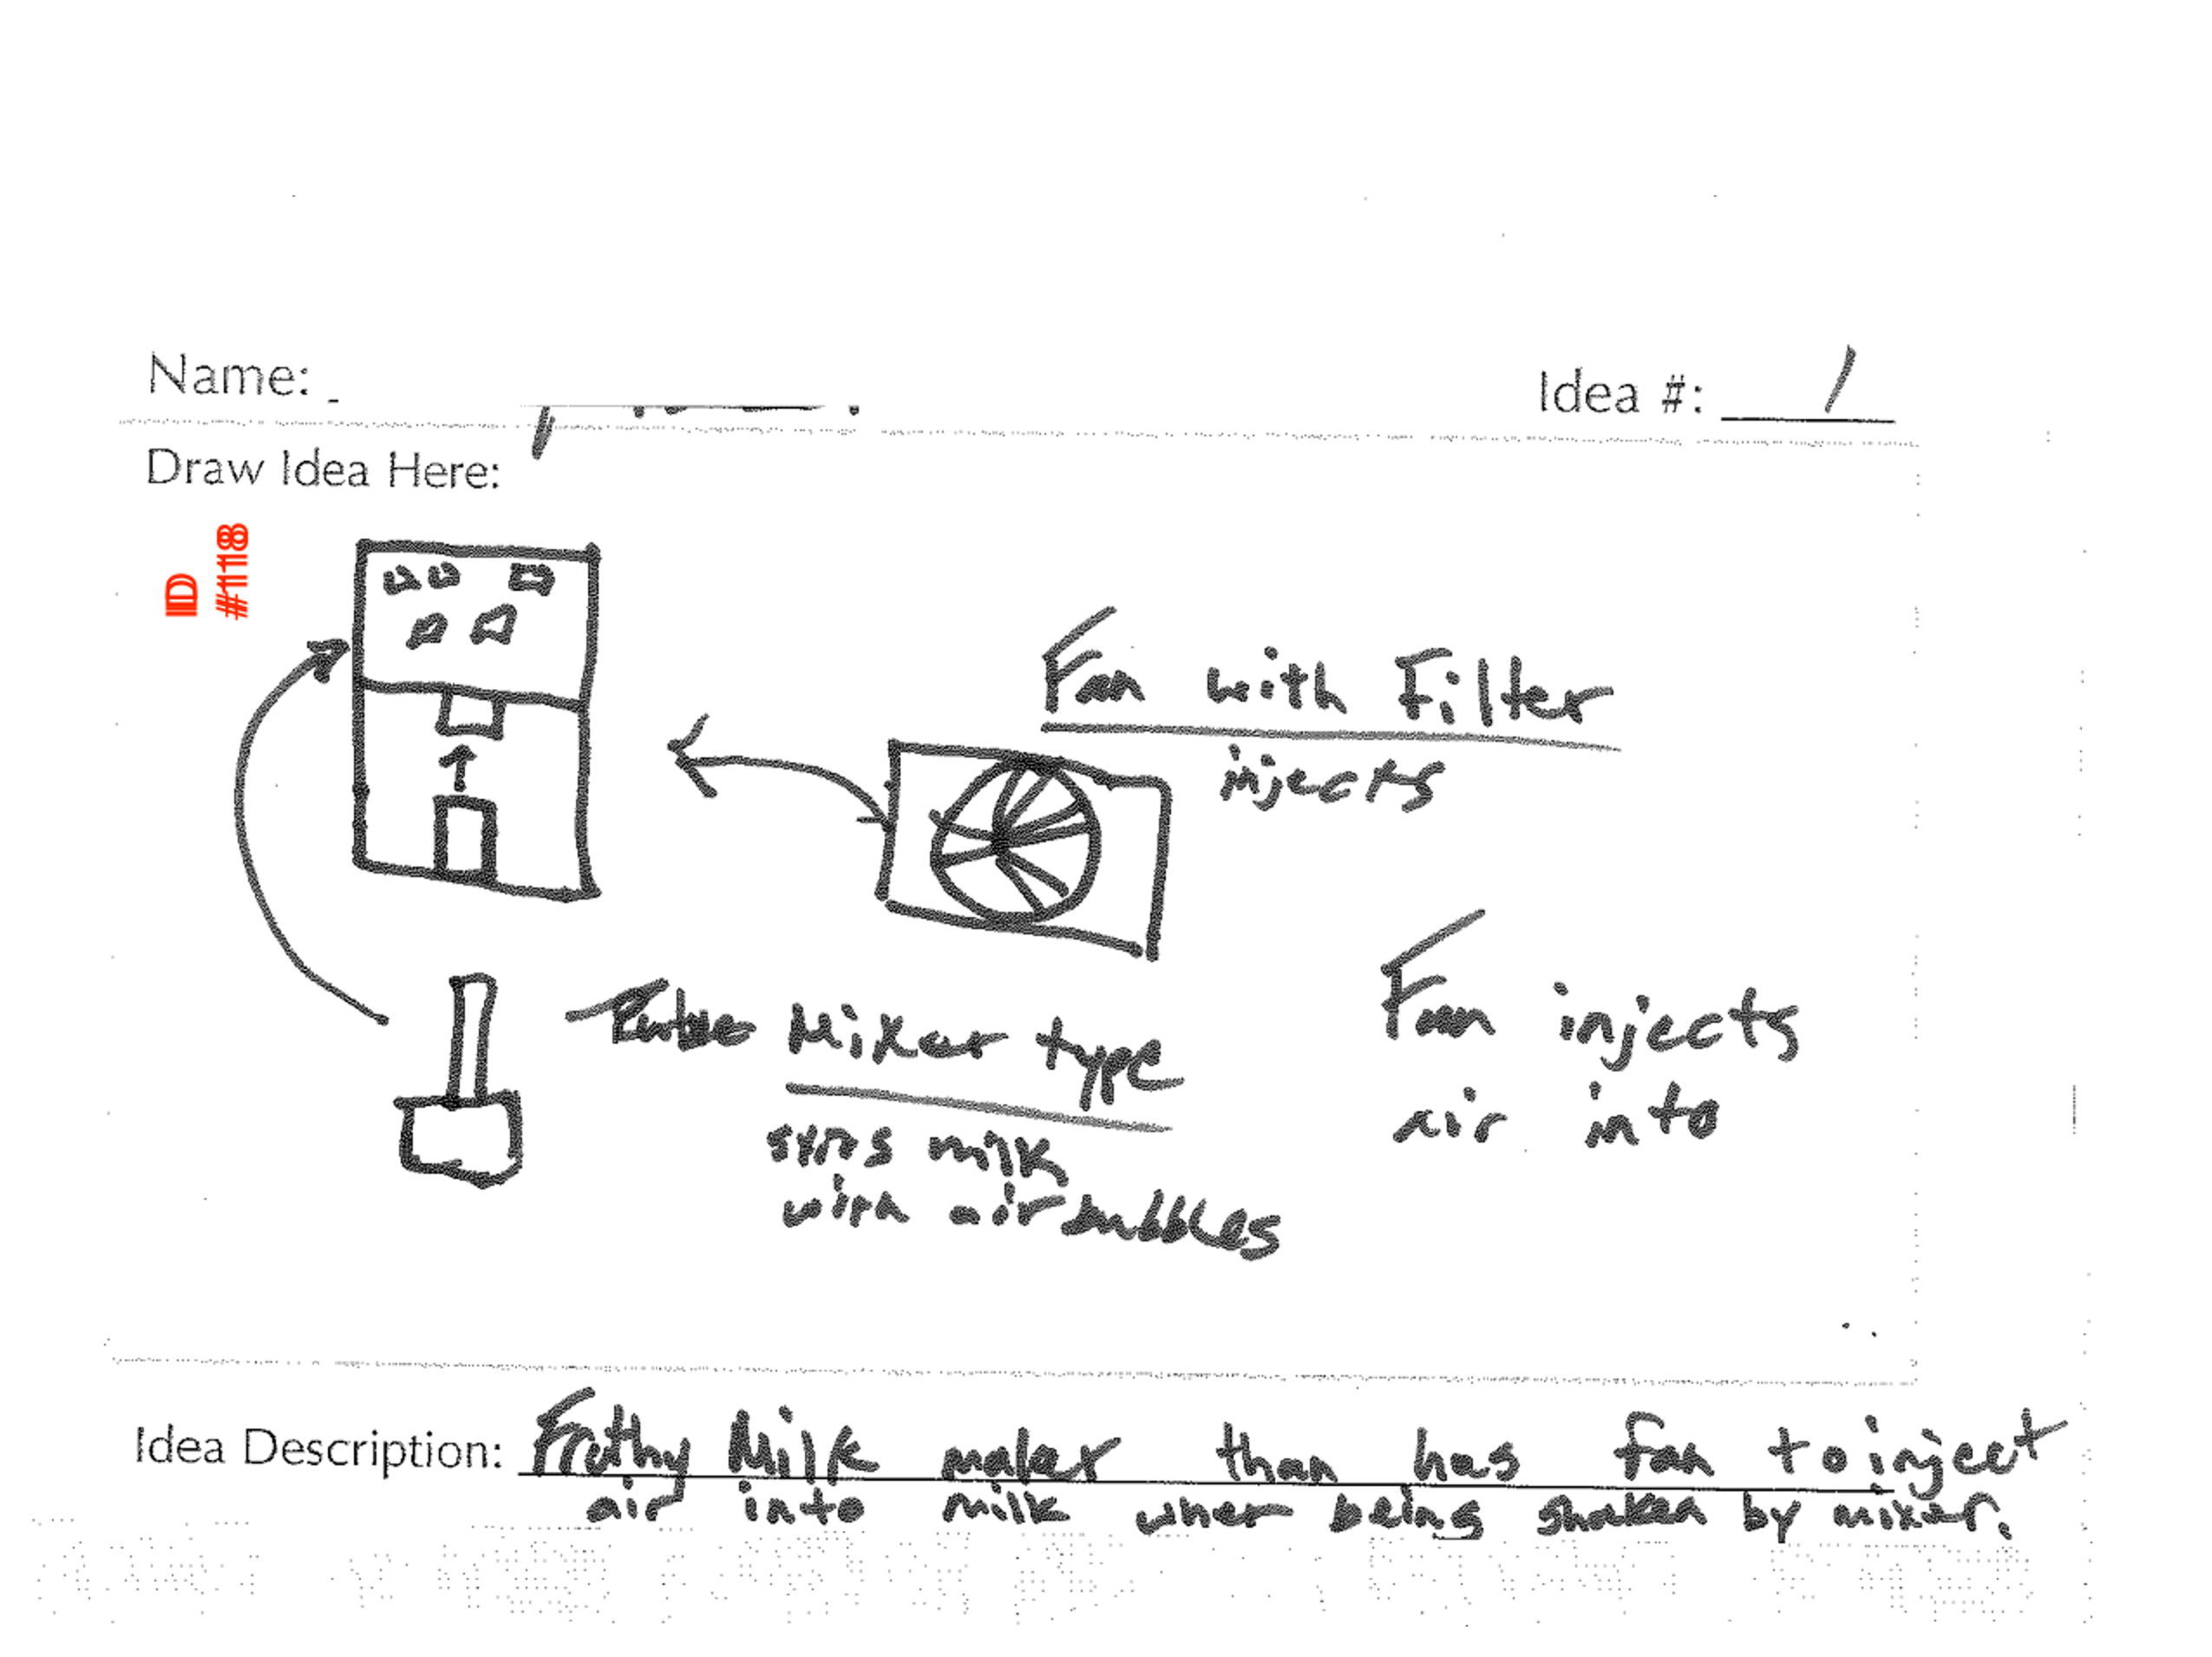 Name:
Idea #: 1
Draw Idea Here:
ID
#1118
Fan with Filter
injects
Mixer type
stirs milk
with air bubbles
Fan injects
air into
Idea Description: Frothy Milk maker than has fan to inject
air into milk when being shaken by mixer.